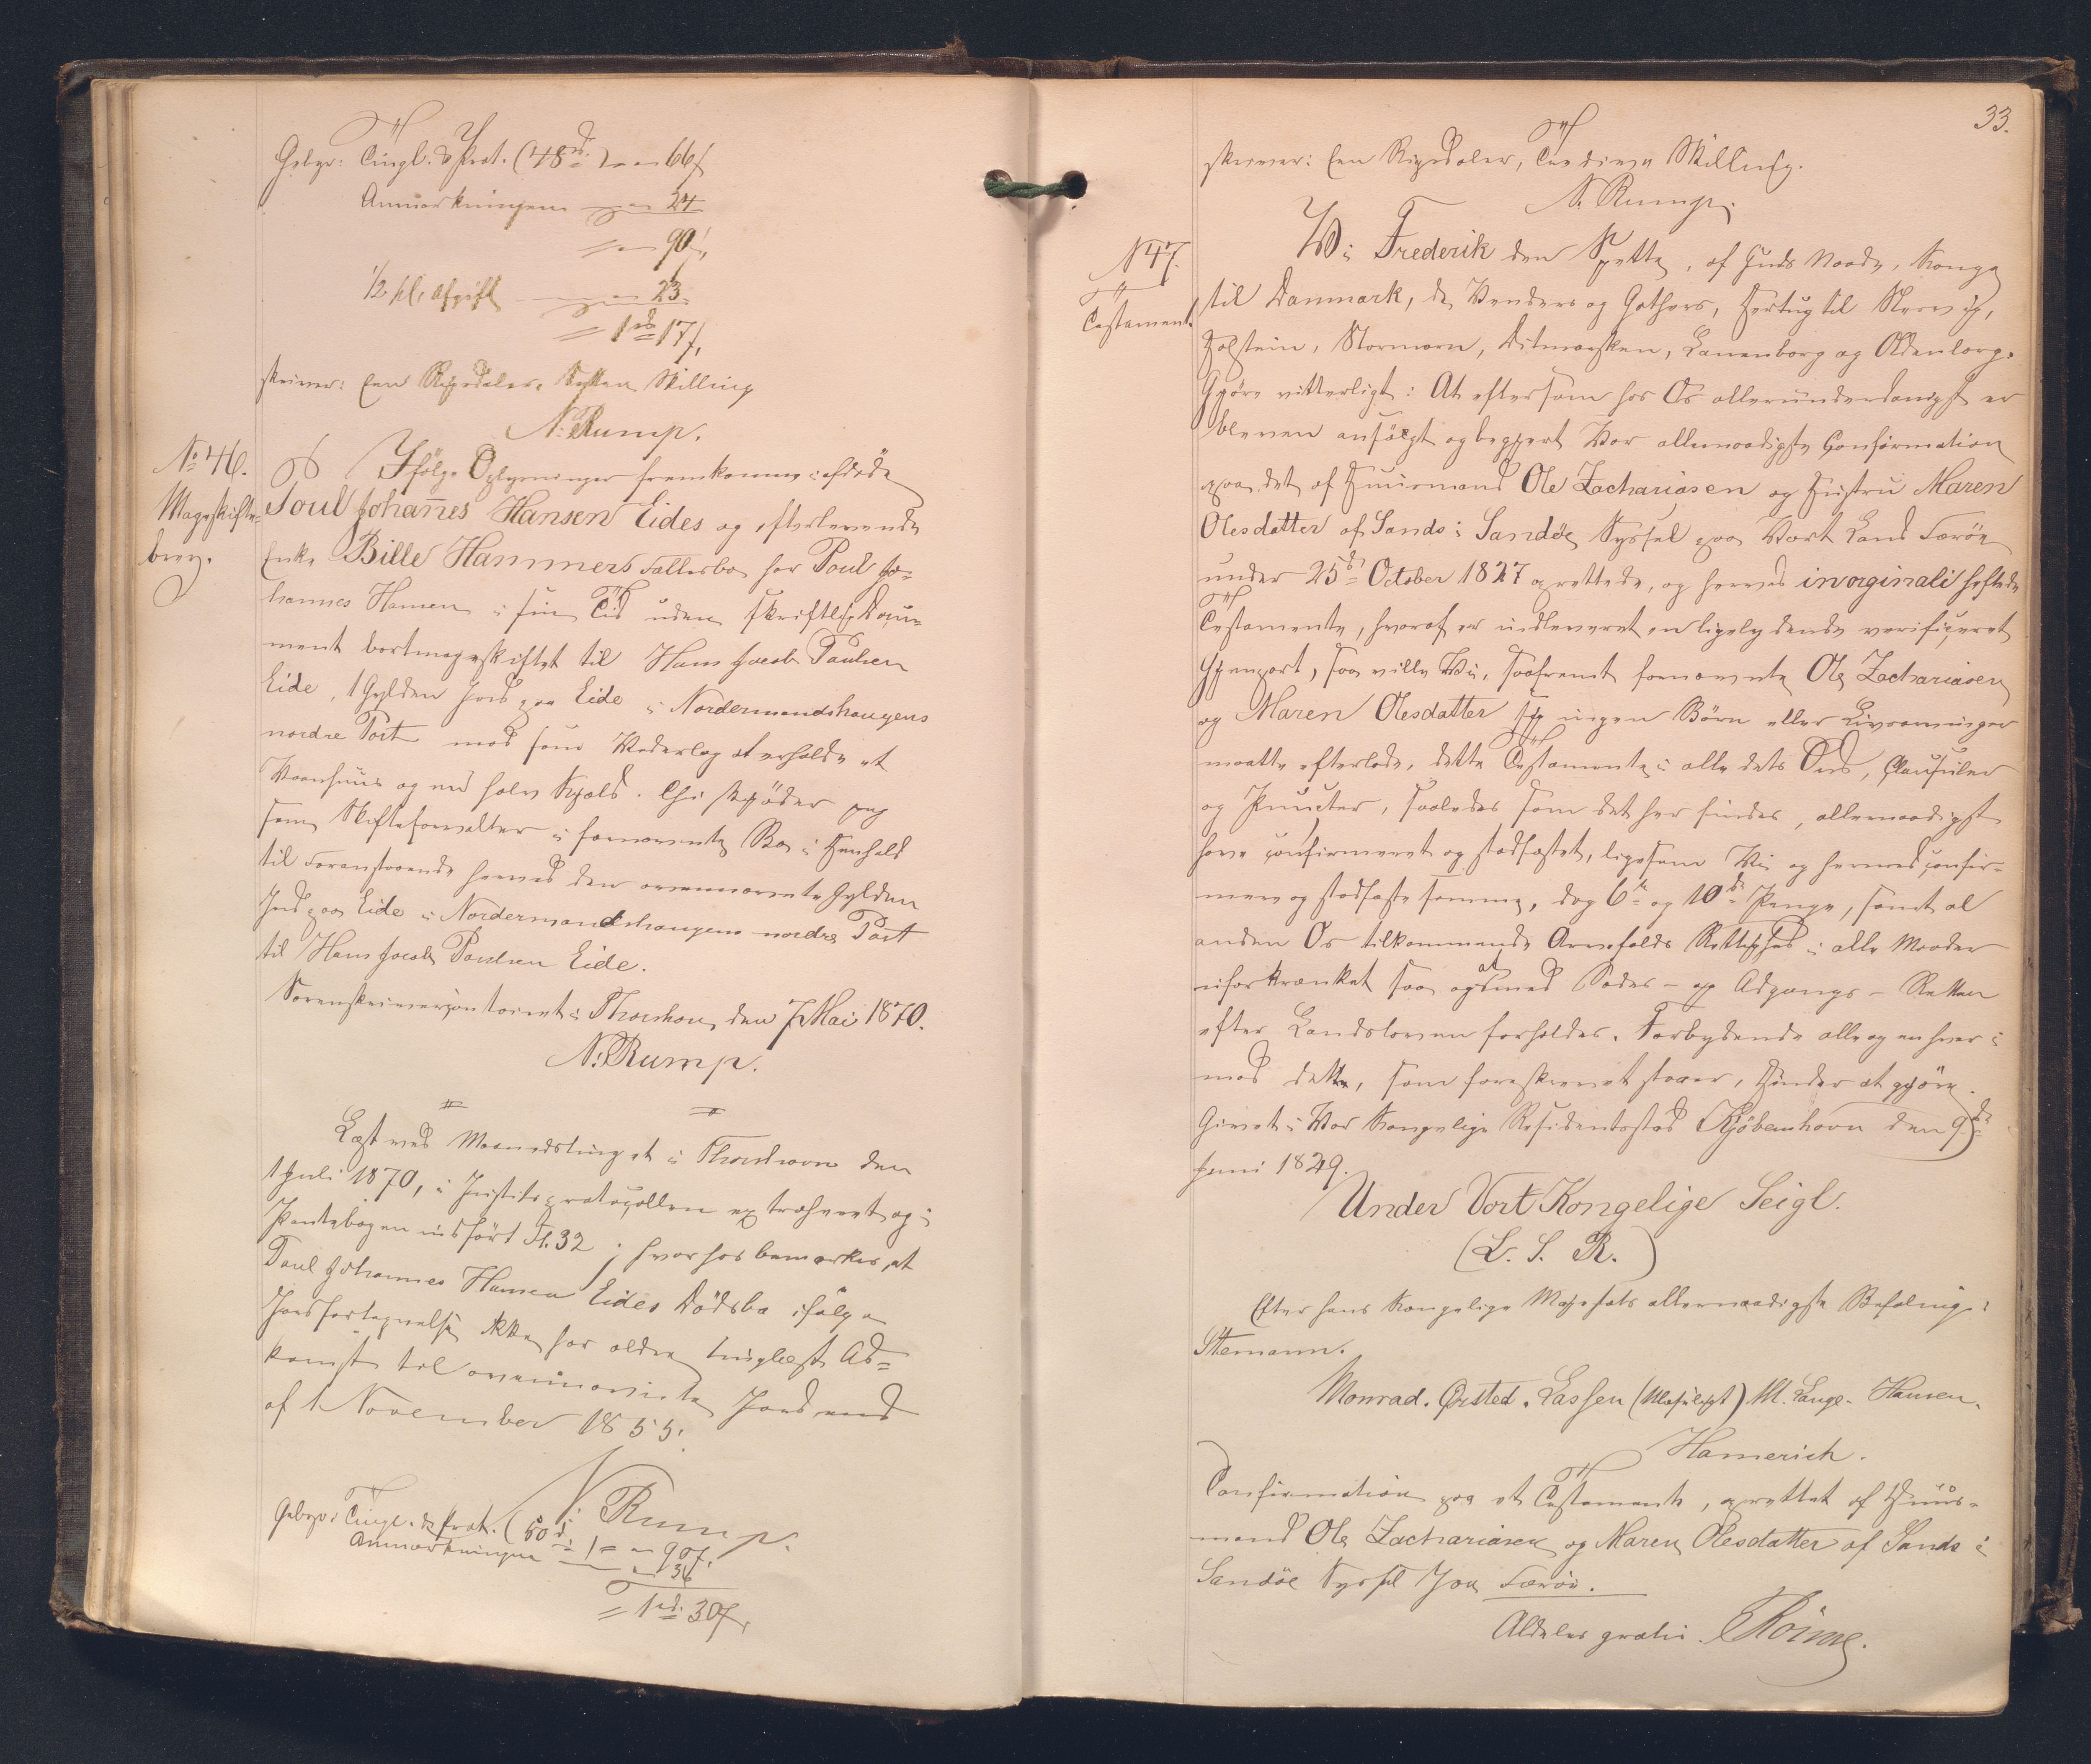 Gebyr: Tingl. & Prot. (48 rd.) = 66 ß
Anmærkningen — 24
= 90 ß
1/2 pCt. Afgift — 23
= 1 rd 17 ß,
skriver: Een Rigsdaler, Sytten Skilling
N. Rump.
No 46.
Mageskifte-
brev.
Ifölge Oplysninger fremkomne i afdöde
Poul Johannes Hansen Eides og efterlevende
Enke Bille Hammers Fællesbo har Poul Jo-
hannes Hansen i sin Tid uden skriftlig Docu-
ment bortmageskiftet til Hans Jacob Paulsen
Eide, 1 Gylden Jord paa Eide i Nordermandshaugens
nordre Part mod som Vederlag at erholde et
Vaanhuus og en halv Kjæld. Thi skjöder jeg
som Skifteforvalter i fornævnte Bo i Henhold
til Foranstaaende herved den ovennævnte Gylden
Jord paa Eide i Nordermandshaugens nordre Part
til Hans Jacob Paulsen Eide.
Sorenskrivercontoiret i Thorshavn, den 7 Mai 1870.
N. Rump.
Læst ved Maanedstinget i Thorshavn den
1 Juli 1870, i Justitsprotocollen extraheret og i
Pantebogen indfört Fl. 32; hvorhos bemærkes, at
Poul Johannes Hansen Eides Dödsbo ifölge
Jordfortegnelsen ikke har ældre tinglæst Ad-
komst til ovennævnte Jord end
af 1 November 1855.
N. Rump.
Gebyr: Tingl. & Prot. (60 rd.) = 90 ß.
Anmærkningen — 36
= 1 rd. 30 ß,
33.
skriver: Een Rigsdaler, Tredive Skilling.
N. Rump.
N 47.
Testament.
Wi Frederik den Sjette, af Guds Naade, Konge
til Danmark, de Venders og Gothers, Hertug til Slesvig,
Holstein, Stormarn, Ditmarsken, Lauenborg og Oldenborg.
Gjöre vitterligt: At eftersom hos Os allerunderdanigst er
bleven ansögt og begjert Vor allernaadigste Confirmation
paa det af Huusmand Ole Zachariasen og Hustru Maren
Olesdatter af Sands i Sandöe Syssel paa Vort Land Færöe
under 25de October 1827 oprettede, og herved in originali heftede
Testamente, hvoraf er indleveret en ligelydende verificeret
Gjenpart, saa ville Vi, saafremt fornævnte Ole Zachariasen
og Maren Olesdatter sig ingen Børn eller Livsarvinger
maatte efterlade, dette Testamente i alle dets Ord, Clausuler
og Puncter, saaledes som det her findes, allernaadigst
have confirmeret og stadfæstet, ligesom Vi og herved confir-
mere og stadfæste samme, dog 6te og 10de Penge, samt al
anden Os tilkommende Arvefalds Rettighed i alle Maader
uforkrænket saa at og med Sædes- og Adgangs-Retten
efter Landsloven forholdes. Forbydende alle og enhver i
mod dette, som foreskrevet staaer, Hinder at gjöre.
Givet i Vor Kongelige Residentsstad Kjöbenhavn den 9de
Juni 1829.
Under Vort Kongelige Seigl.
(L. S. R.)
Efter hans Kongelige Majestæts allernaadigste Befaling.
Stemann.
Monrad. Ørsted. Lassen (Ulæseligt) M. Lange. Hansen.
Hamerich.
Confirmation paa et Testamente, oprettet af Huus-
mand Ole Zachariasen og Maren Olesdatter af Sands i
Sandöe Syssel paa Færöe.
Aldeles gratis.